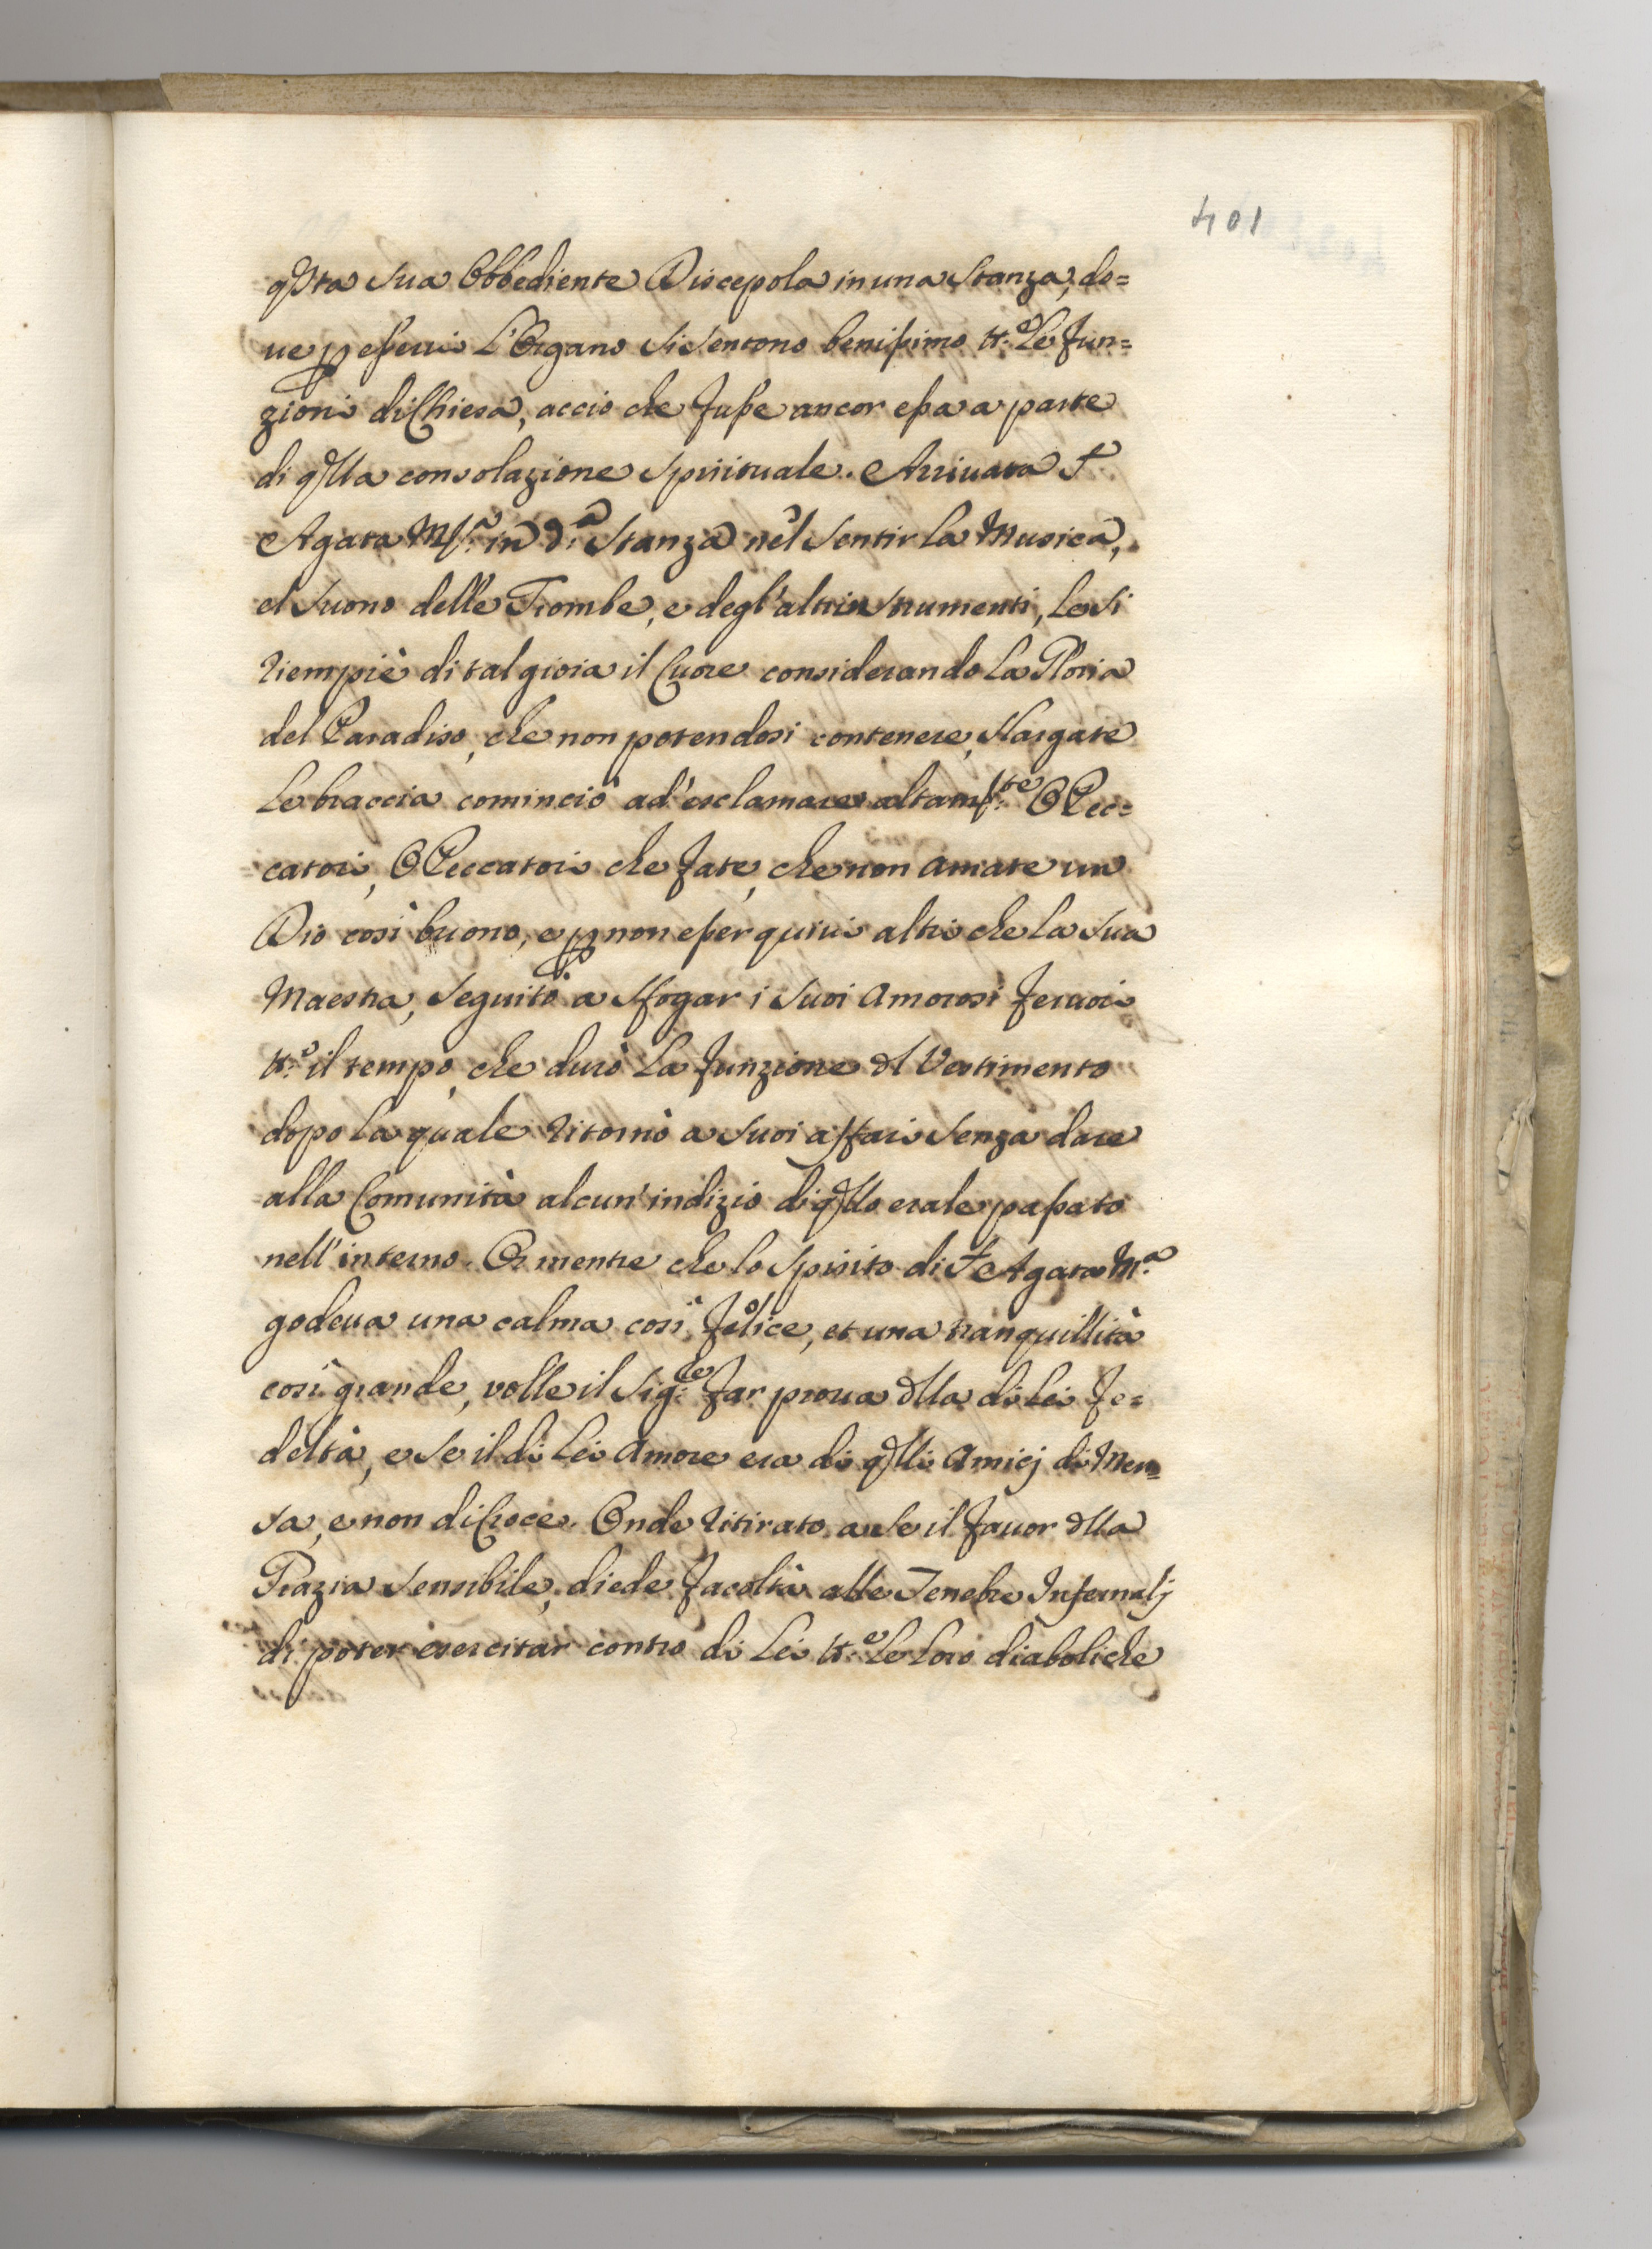 401
q̃sta sua Obbediente Discepola in una stanza, do=
ue p esserui L'Organo si sentono benissimo tt.e Le fun=
zioni di Chiesa, acciò che fusse ancor essa a parte
di q̃lla consolazione spirituale. Arriuata S.r
Agata M.a in d.a stanza nel sentir la Musica,
el suono delle Trombe, e degl'altri instrumenti, Le si
riempiè di tal gioia il Cuore considerando La Gloria
del Paradiso, che non potendosi contenere, slargate
Le braccia cominciò ad'esclamare altam.te O Pec=
catori, O Peccatori che fate, che non amate un
Dio così buono, e p non esser quiui altri che La sua
Maestra, seguitò a sfogar i suoi amorosi feruori
tt.o il tempo, che durò La funzione dl Vestimento
dopo la quale ritornò a suoi affari senza dare
alla Comunità alcun'indizio di q̃llo erale passato
nell'interno. Or mentre che lo spirito di S.r Agata M.a
godeua una calma così felice, et una tranquillità
così grande, volle il Sig.re far proua dlla di Lei fe=
deltà, e se il di Lei amore era di q̃lli Amicj di Men=
sa, e non di Croce. Onde ritirato a se il fauor dlla
Grazia sensibile, diede facoltà alle Tenebre Infernalj
di poter esercitar contro di Lei tt.e Le Loro diaboliche